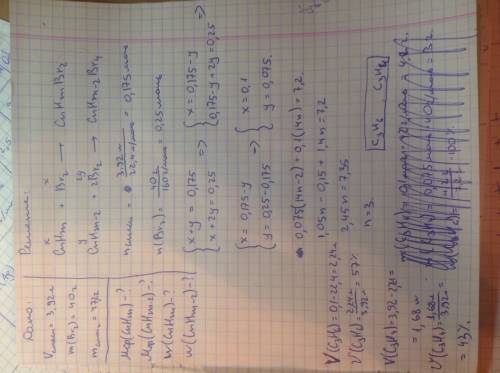 Дано:
Vсмеси = 3,92л
m(Br₂) = 40г
mсмеси = 7,2г
Mф(CnHm) - ?
Mф(CnHm-2) - ?
W(CnHm) - ?
W(CnHm-2) - ?
Решение:
x x
CnHm + Br₂ → CnHmBr₂
y 2y
CnHm-2 + 2Br₂ → CnHm-2Br₄
nсмеси = 3,92л / 22,4л/моль = 0,175моль
n(Br₂) = 40г / 160г/моль = 0,25моль
{ x+y = 0,175 => { x = 0,175-y =>
{ x+2y = 0,25 { 0,175-y+2y = 0,25
{ x = 0,175-y => { x = 0,1
{ y = 0,25-0,175 { y = 0,075.
0,075(14n-2) + 0,1(14n) = 7,2
1,05n - 0,15 + 1,4n = 7,2
2,45n = 7,35
n = 3
C₃H₆ C₃H₄
V(C₃H₆) = 0,1·22,4 = 2,24л
V(C₃H₆) = 2,24л / 3,92л = 57%
V(C₃H₄) = 3,92-2,24 =
= 1,68л
V(C₃H₄) = 1,68л / 3,92л =
= 43%